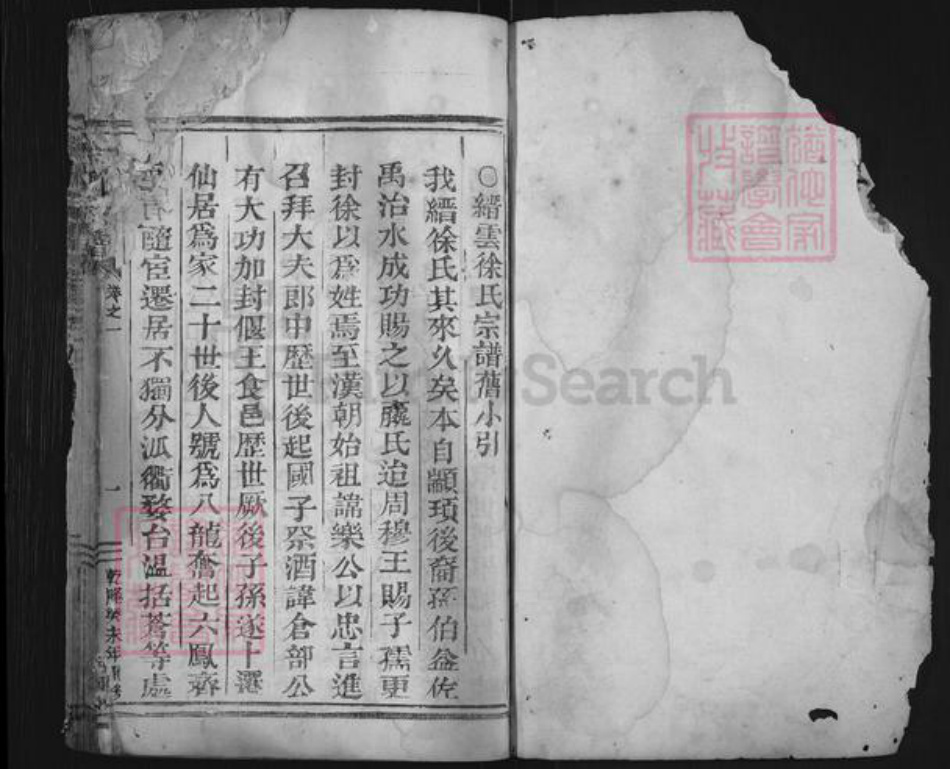 ○縉雲徐氏宗譜舊小引
我縉徐氏其來久矣本自顓頊後裔孫伯益佐
禹治水成功賜之以嬴氏迨周穆王賜子孺更
封徐以爲姓焉至漢朝始祖諱樂公以忠言進
召拜大夫郎中歷世後起國子祭酒諱倉部公
有大功加封偃王食邑歷世厥後子孫遂卜遷
仙居爲家二十世後人號爲八龍奮起六鳳齊
隨宦遷居不獨分派衢婺台温括蒼等處
卷之一
一
乾隆癸未年
Search